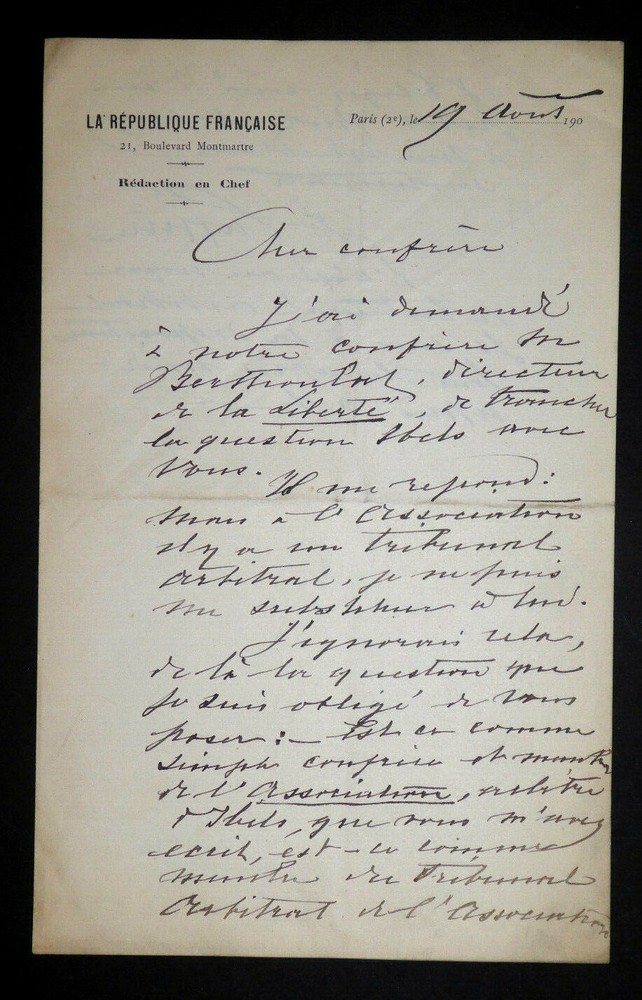 LA RÉPUBLIQUE FRANÇAISE
21, Boulevard Montmartre
Rédaction en Chef
Paris (2e), le 19 Août 190
Cher confrère
J'ai demandé
à notre confrère Mr
Berthoulat, directeur
de la Liberté, de trancher
la question Ibels avec
vous.
Il me répond:
mais à l'Association
il y a un tribunal
arbitral, je ne puis
me substituer à lui.
J'ignorais cela,
de là la question que
je suis obligé de vous
poser : – Est-ce comme
simple confrère et membre
de l'Association, arbitre
d'Ibels, que vous m'avez
écrit, est-ce comme
membre du Tribunal
Arbitral de l'Association